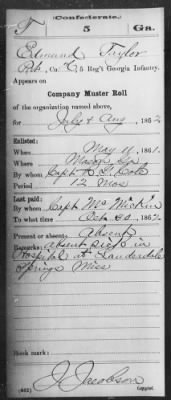 Confederate.
T 5 Ga.
Edmund Taylor
Pvt., Co. C, 5 Reg't Georgia Infantry.
Appears on
Company Muster Roll
of the organization named above,
for July & Aug, 1862
Enlisted:
When May 11, 1861.
Where Macon Ga
By whom Capt
Period 12 Mos
Last paid:
By whom Capt Mc Mickin
To what time 1862.
Present or absent: Absent
Remarks: Absent sick in
Hospital at Lauderdale
Springs Miss
Check mark:
(642) J. Jacobson
Copyist.